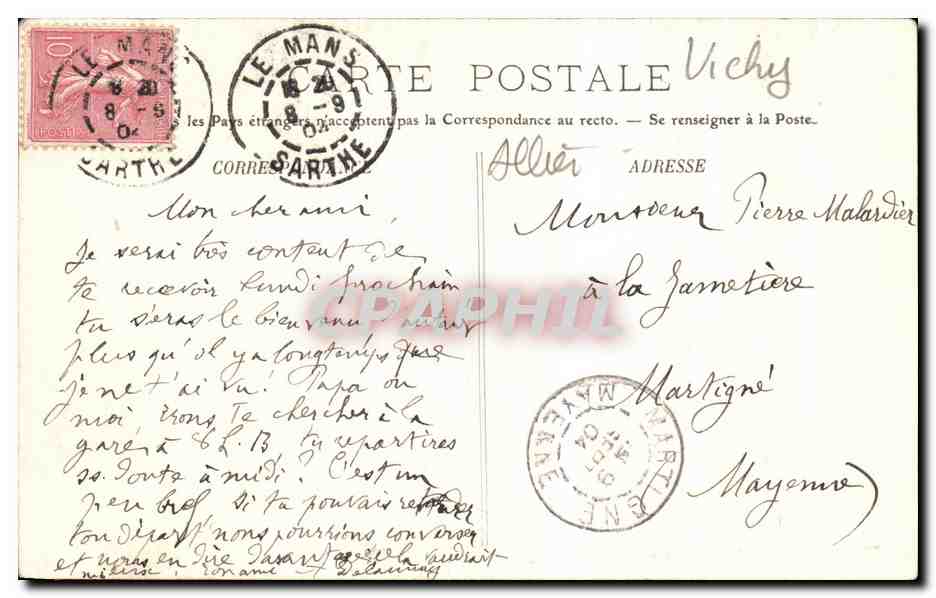 10
POSTES
LE MANS
8 20
8 - 9
04
SARTHE
LE MANS
18 20
8 - 9
04
SARTHE
CARTE POSTALE
Vichy
les Pays étrangers n'acceptent pas la Correspondance au recto. — Se renseigner à la Poste.
CORRESPONDANCE
Allier
ADRESSE
Mon cher ami,
Je serai très content de
te recevoir lundi prochain
tu seras le bienvenu, d'autant
plus qu'il y a longtemps que
je ne t'ai vu! Papa ou
moi, irons te chercher à la
gare à 8h.13 tu repartires
ss. doute à midi? C'est un
peu bref, si tu pouvais retarder
ton départ nous pourrions converser
et nous en dire davantage cela vaudrait
mieux. ton ami Delaunay
Monsieur Pierre Malardier
à la Jametière
Martigné
Mayenne
MARTIGNÉ
MAYENNE
9
SEPT
04
CPAPHIL